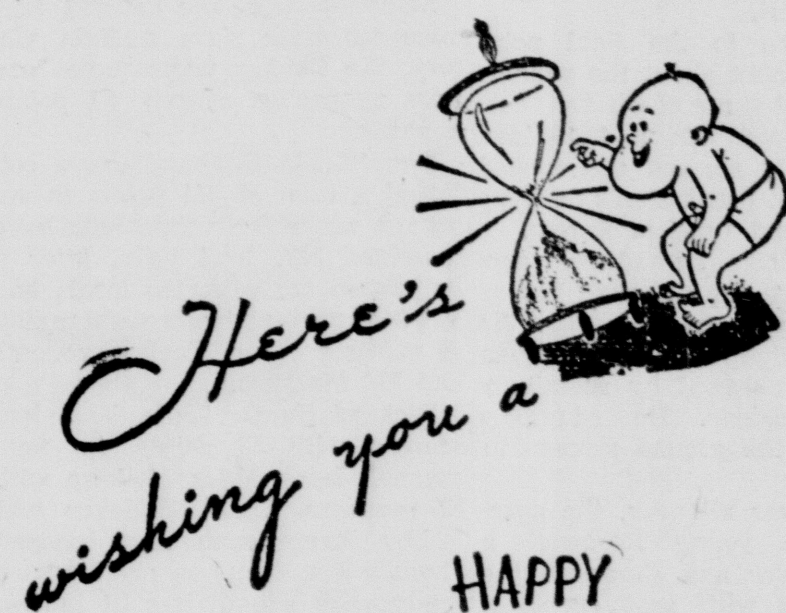 Here's
wishing you a
HAPPY